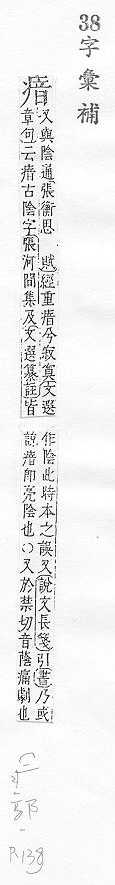 38字彙補
瘖
又與陰通張衡思 賦經重瘖兮寂寞文選
章句云瘖古陰字張河間集及文選纂註皆
作陰此時本之誤又說文長箋引書乃或
說瘖即亮陰也○又於禁切音蔭痛劇也
R138